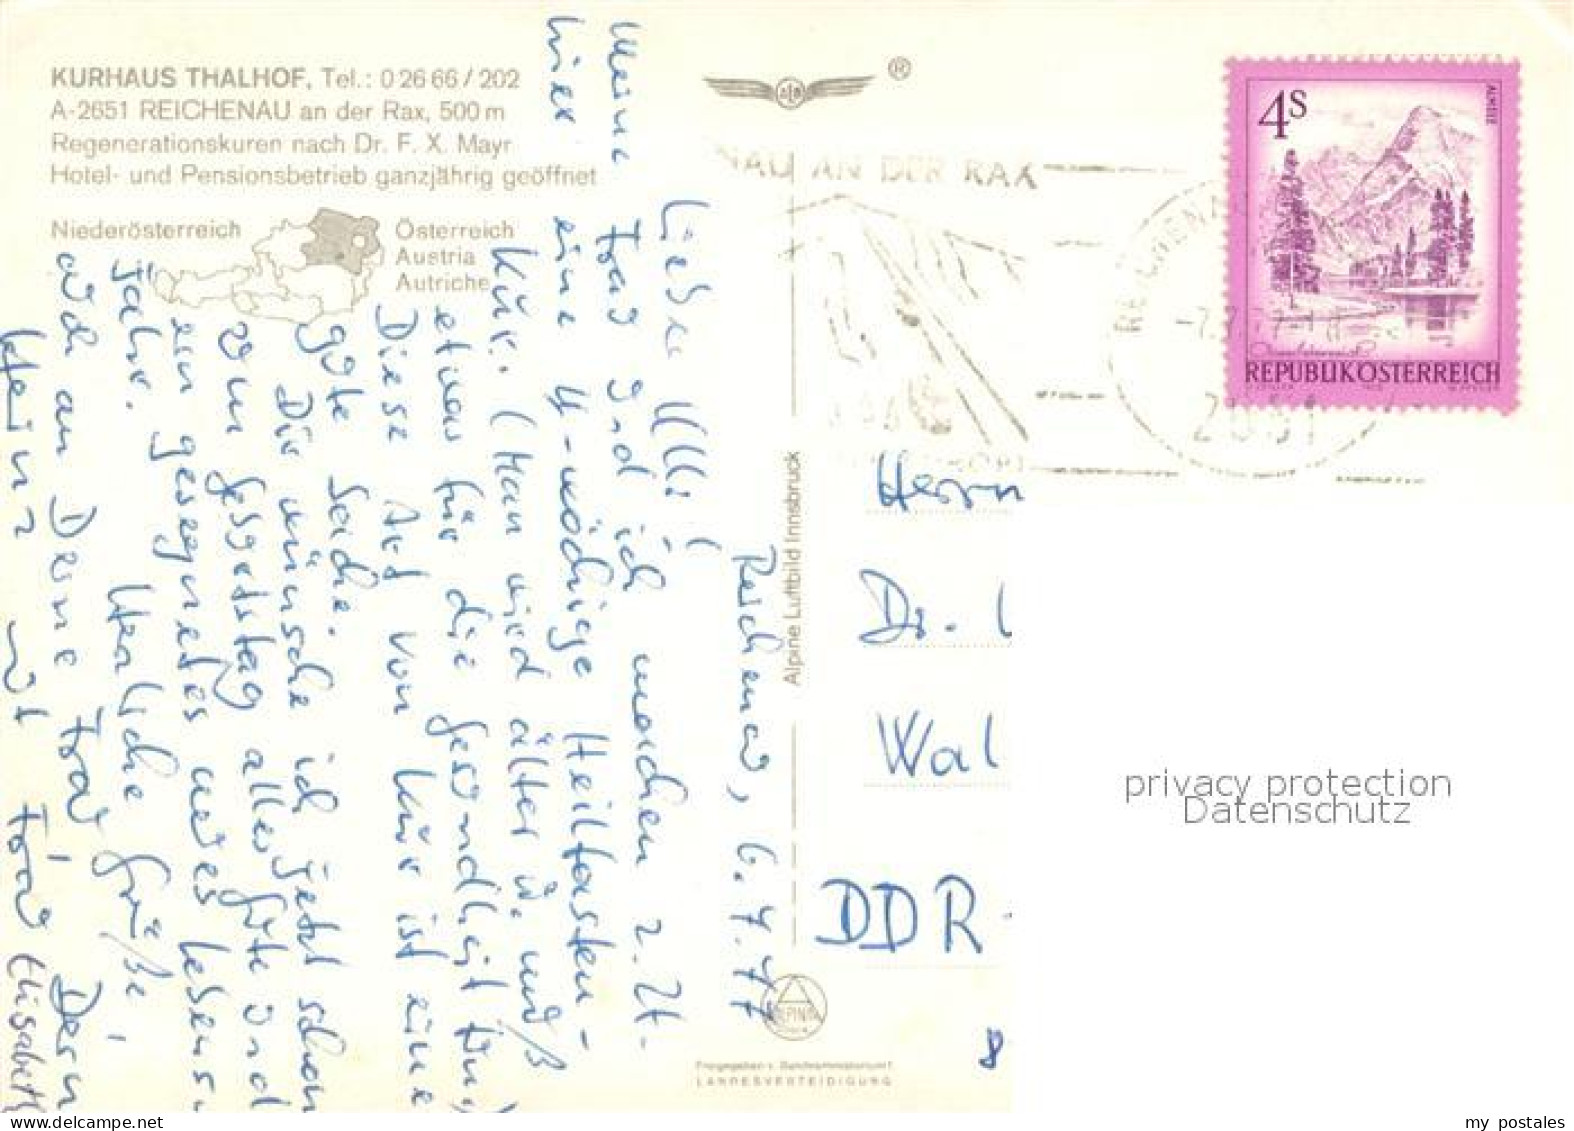 KURHAUS THALHOF, Tel.: 0 26 66 / 202
A-2651 REICHENAU an der Rax, 500 m
Regenerationskuren nach Dr. F. X. Mayr
Hotel- und Pensionsbetrieb ganzjährig geöffnet
Niederösterreich
Österreich
Austria
Autriche
Reichenau, 6.7.77
Lieber Ulli!
Meine Frau und ich machen z. Zt.
hier eine 4-wöchige Heilfasten-
kur. (Man wird älter u. muß
etwas für die Gesundheit tun)
Diese Art von Kur ist eine
gute Sache.
Dir wünsche ich jetzt schon
zum Geburtstag alles Gute und
ein gesegnetes neues Lebens-
jahr.
Herzliche Grüße,
auch an Deine Frau, Dein
Heinz und Frau Elisabeth
Alpine Luftbild Innsbruck
Freigegeben v. Bundesministerium f.
LANDESVERTEIDIGUNG
®
NAU AN DER RAX
2651
4S
ALMSEE
Oberösterreich
REPUBLIK ÖSTERREICH
Herrn
Dr.
Wal
DDR -
8
privacy protection
Datenschutz
my postales
www.delcampe.net